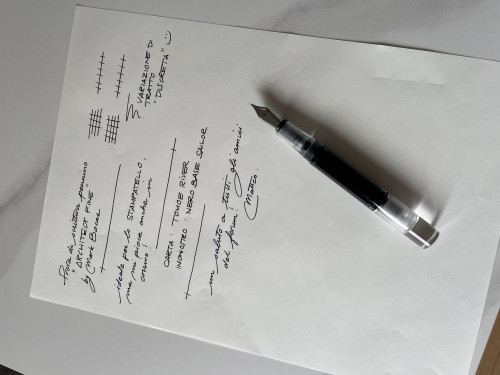 Prova di scrittura pennino
"ARCHITECT FINE"
by Mark Bacas
ideale per lo STAMPATELLO,
ma mi piace anche in
corsivo!
CARTA: TOMOE RIVER
INCHIOSTRO: NERO BASE SAILOR
un saluto a tutti gli amici
del forum,
Matteo.
? VARIAZIONE DI
TRATTO
"DISCRETA" :)